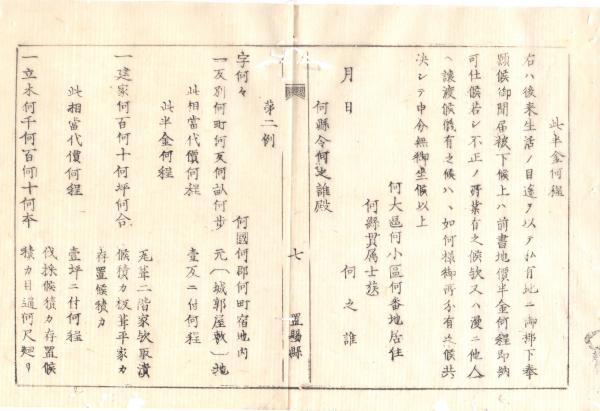 此半金何程
右ハ後来生活ノ目途ヲ以テ私有地ニ御拂下奉
願候御聞届被下候上ハ前書地價半金何程即納
可仕候若シ不正ノ所業有之候欤又ハ漫ニ他人
ヘ譲渡候儀有之候ハヽ如何様御所分有之候共
決シテ申分無御坐候以上
何大區何小區何番地居住
何縣貫属士族
何之誰
月日
何縣令何之誰殿
七 置賜縣
第二例
字何々 何國何郡何町宿地内
一反別何町何反何畝何歩 元〔城郭屋敷〕地
此相當代價何程 壹反ニ付何程
此半金何程
一建家何百何十何坪何合 瓦葺二階家欤取潰
候積カ板葺平家カ
存置候積カ
此相當代價何程 壹坪ニ付何程
一立木何千何百何十何本 伐採候積カ存置候
積カ目通何尺廻リ